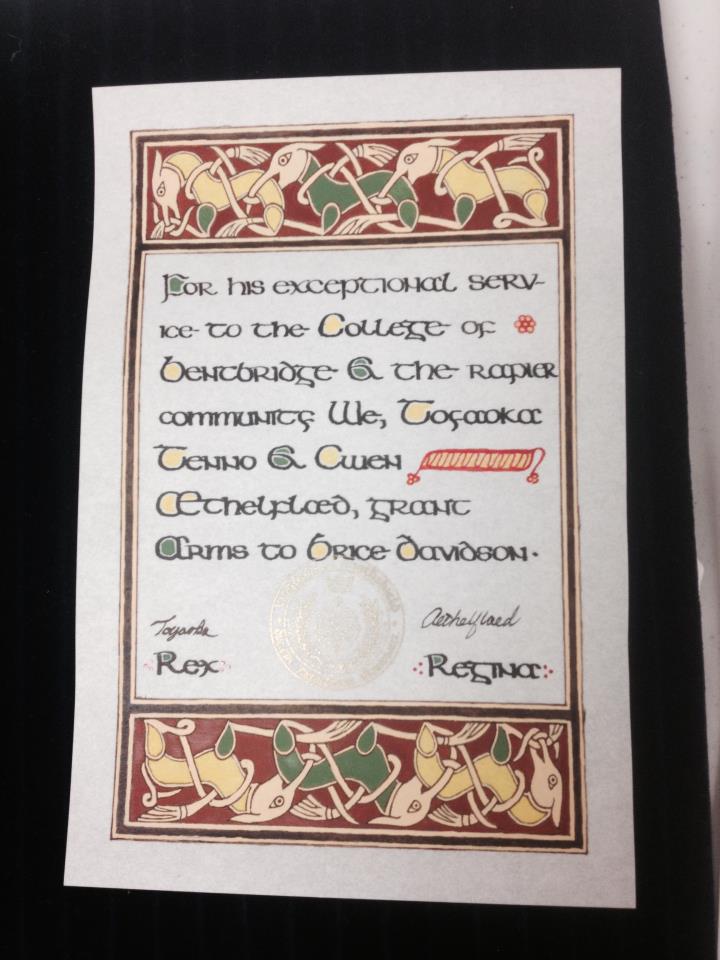 For his exceptional serv-
ice to the College of
Bentbridge & the rapier
community We, Toyaoka
Tenno & Cwen
Æthelflæd, grant
Arms to Brice Davidson.
Toyaoka Aethelflaed
Rex Regina